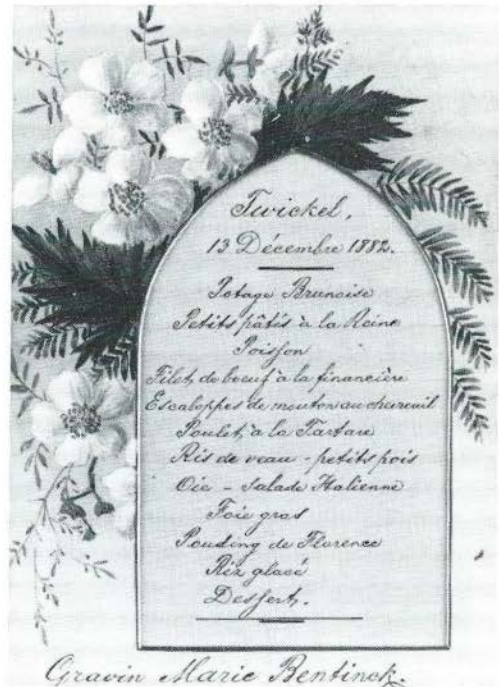 Twickel,
13 Décembre 1882.
Potage Brunoise
Petits pâtis à la Reine
Poisson
Filet de boeuf à la financière
Escaloppes de mouton au chevreuil
Poulet à la Tartare
Ris de veau - petits pois
Oie - Salade Italienne
Foie gras
Pouding de Florence
Riz glacé
Dessert.
Gravin Marie Bentinck.